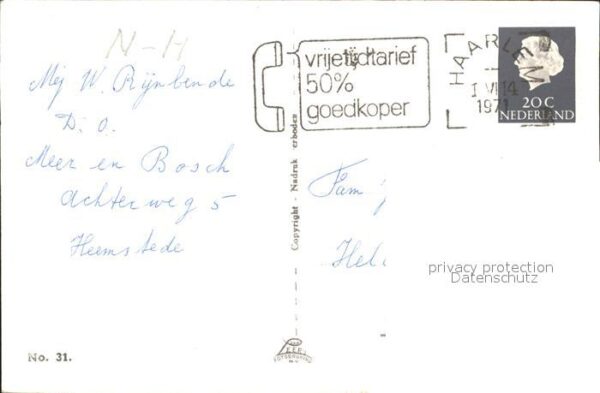 N-H
Mej W. Rijnbende
D. O.
Meer en Bosch
achterweg 5
Heemstede
No. 31.
vrijetijdtarief
50%
goedkoper
HAARLEM
1971
20 C
NEDERLAND
Copyright - Nadruk verboden
Fam
Hel
privacy protection
Datenschutz